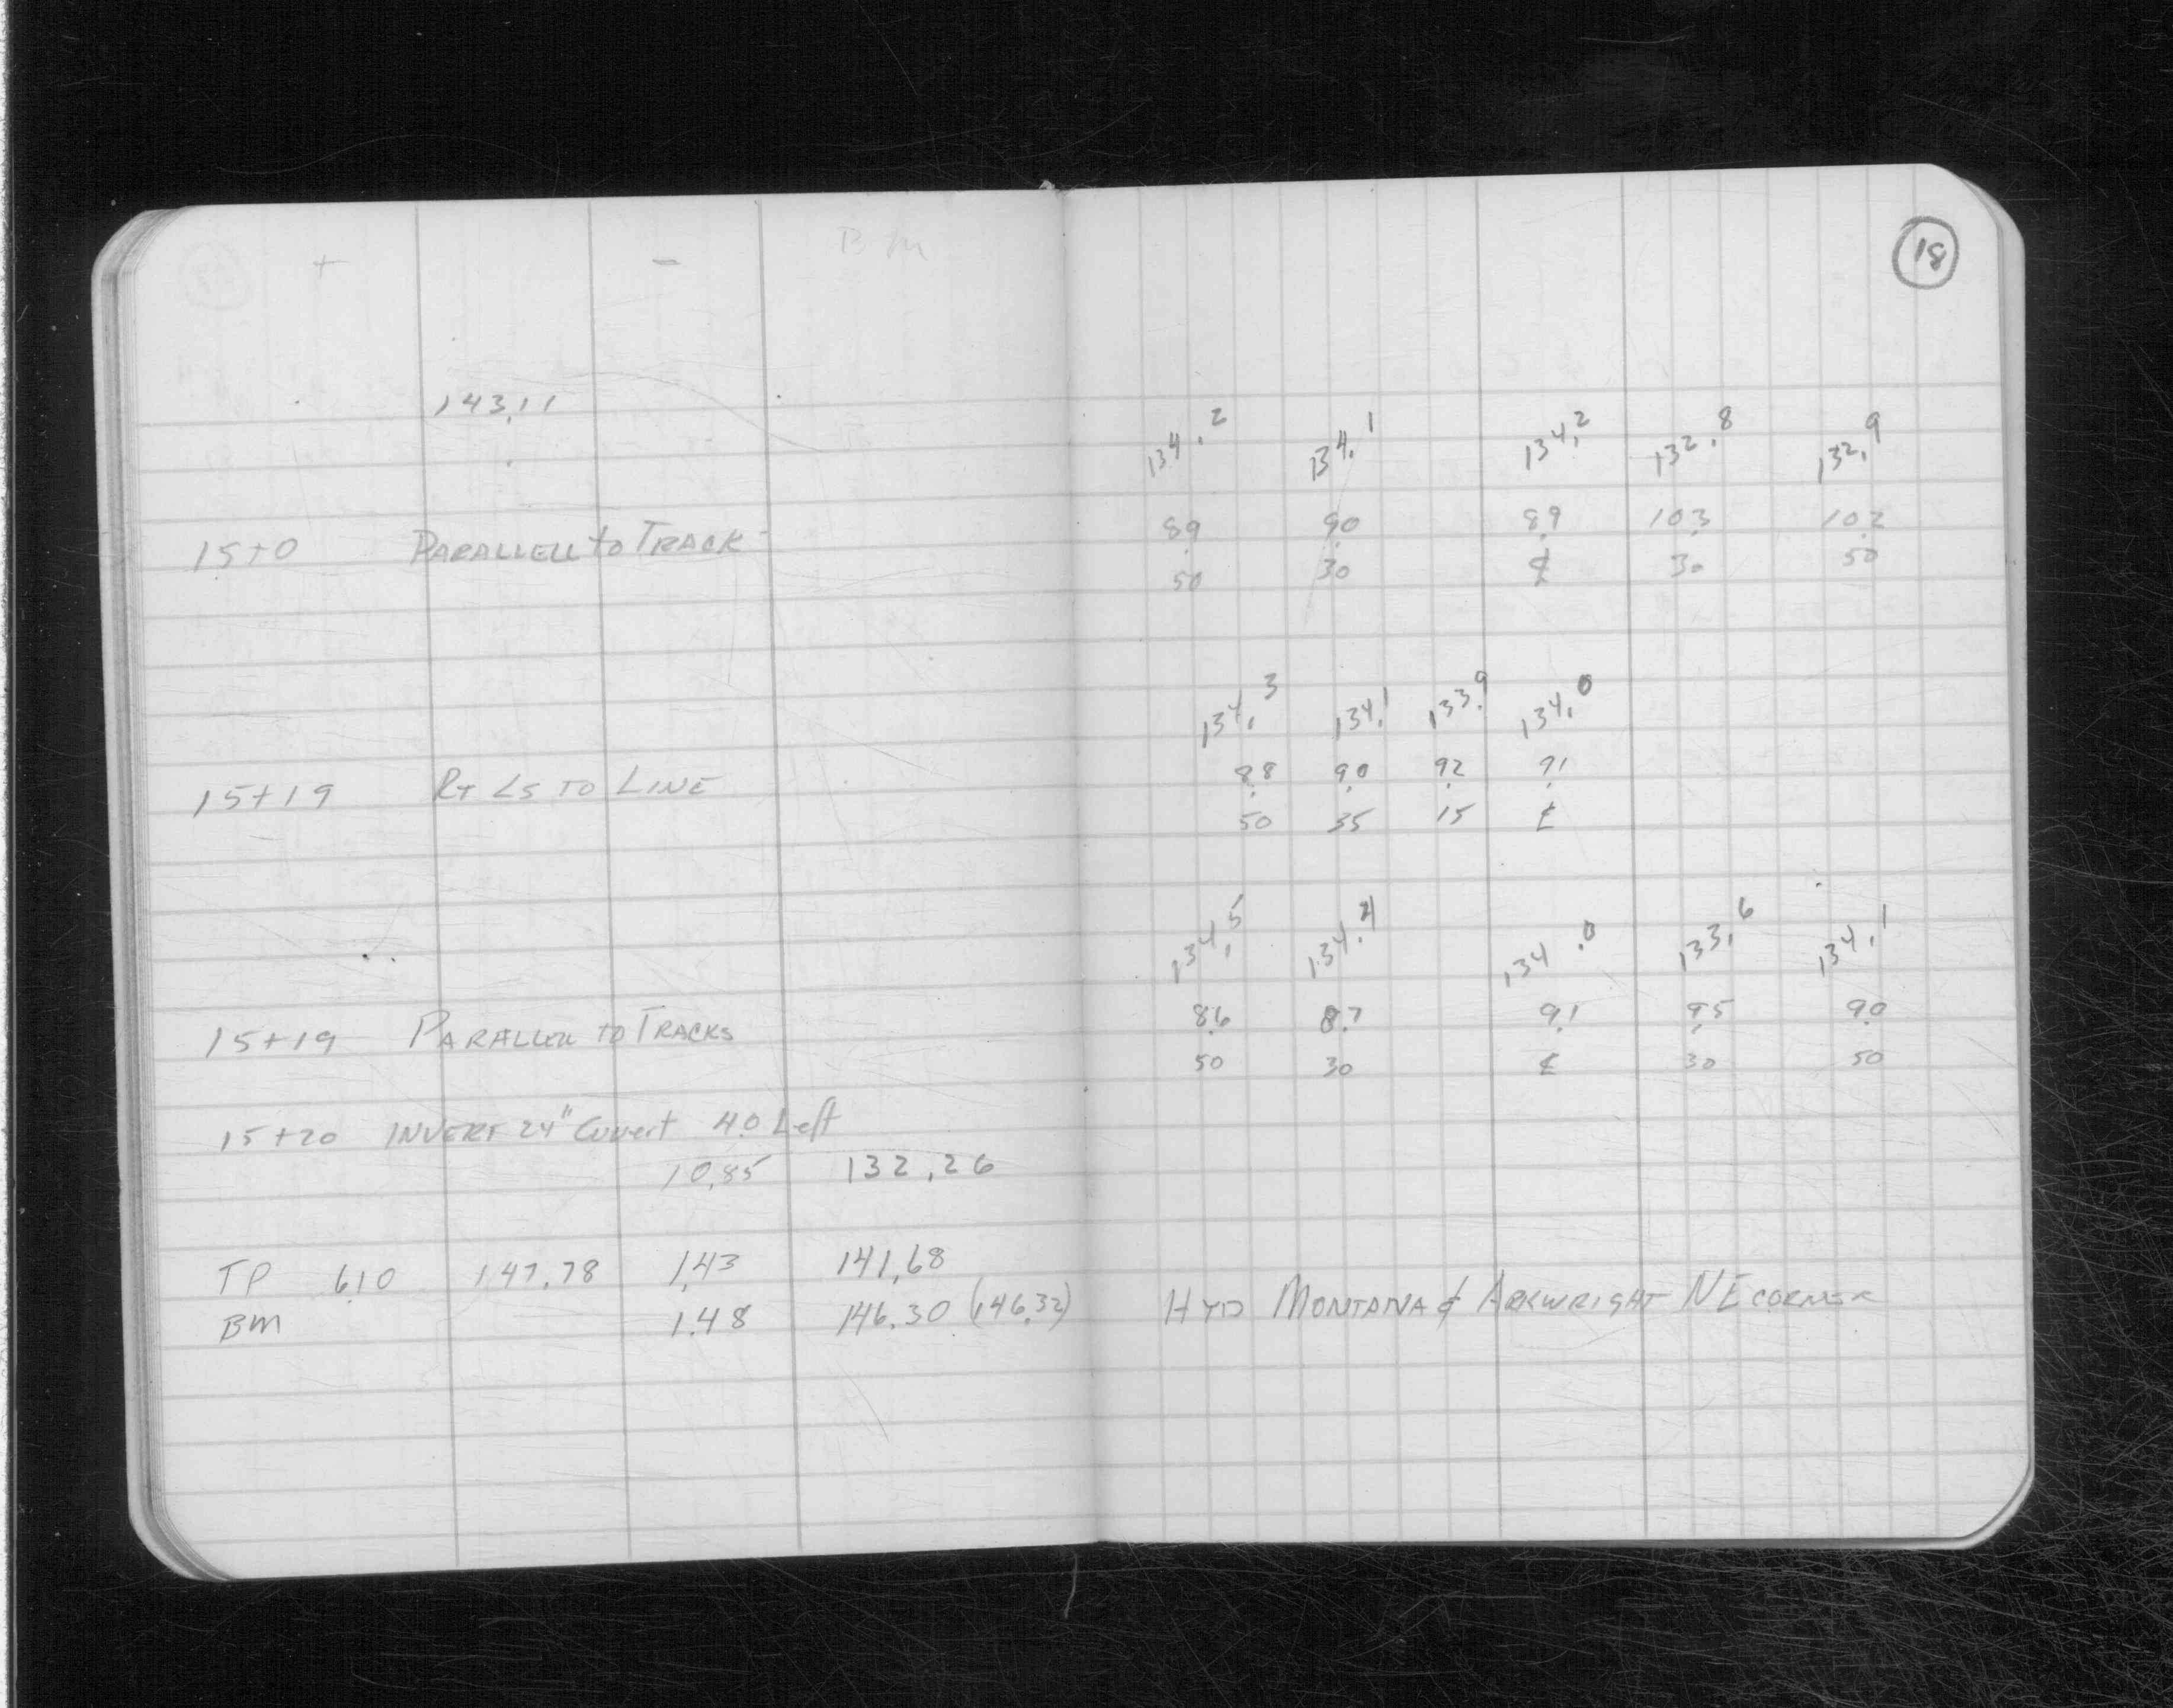 + - B M
18
143.11
134.2 134.1 134.2 132.8 132.9
15+0 PARALLELL to TRACK 8.9 9.0 8.9 10.3 10.2
50 30 ℄ 30 50
134.3 134.1 133.9 134.0
15+19 RT Ls TO LINE 8.8 9.0 9.2 9.1
50 35 15 ℄
134.5 134.4 134.0 133.6 134.1
15+19 PARALLEL TO TRACKS 8.6 8.7 9.1 9.5 9.0
50 30 ℄ 30 50
15+20 INVERT 24" Cuvert 40 Left
10.85 132.26
TP 6.10 147.78 1.43 141.68
BM 1.48 146.30 (146.32) HYD MONTANA & ARKWRIGHT NE CORNER